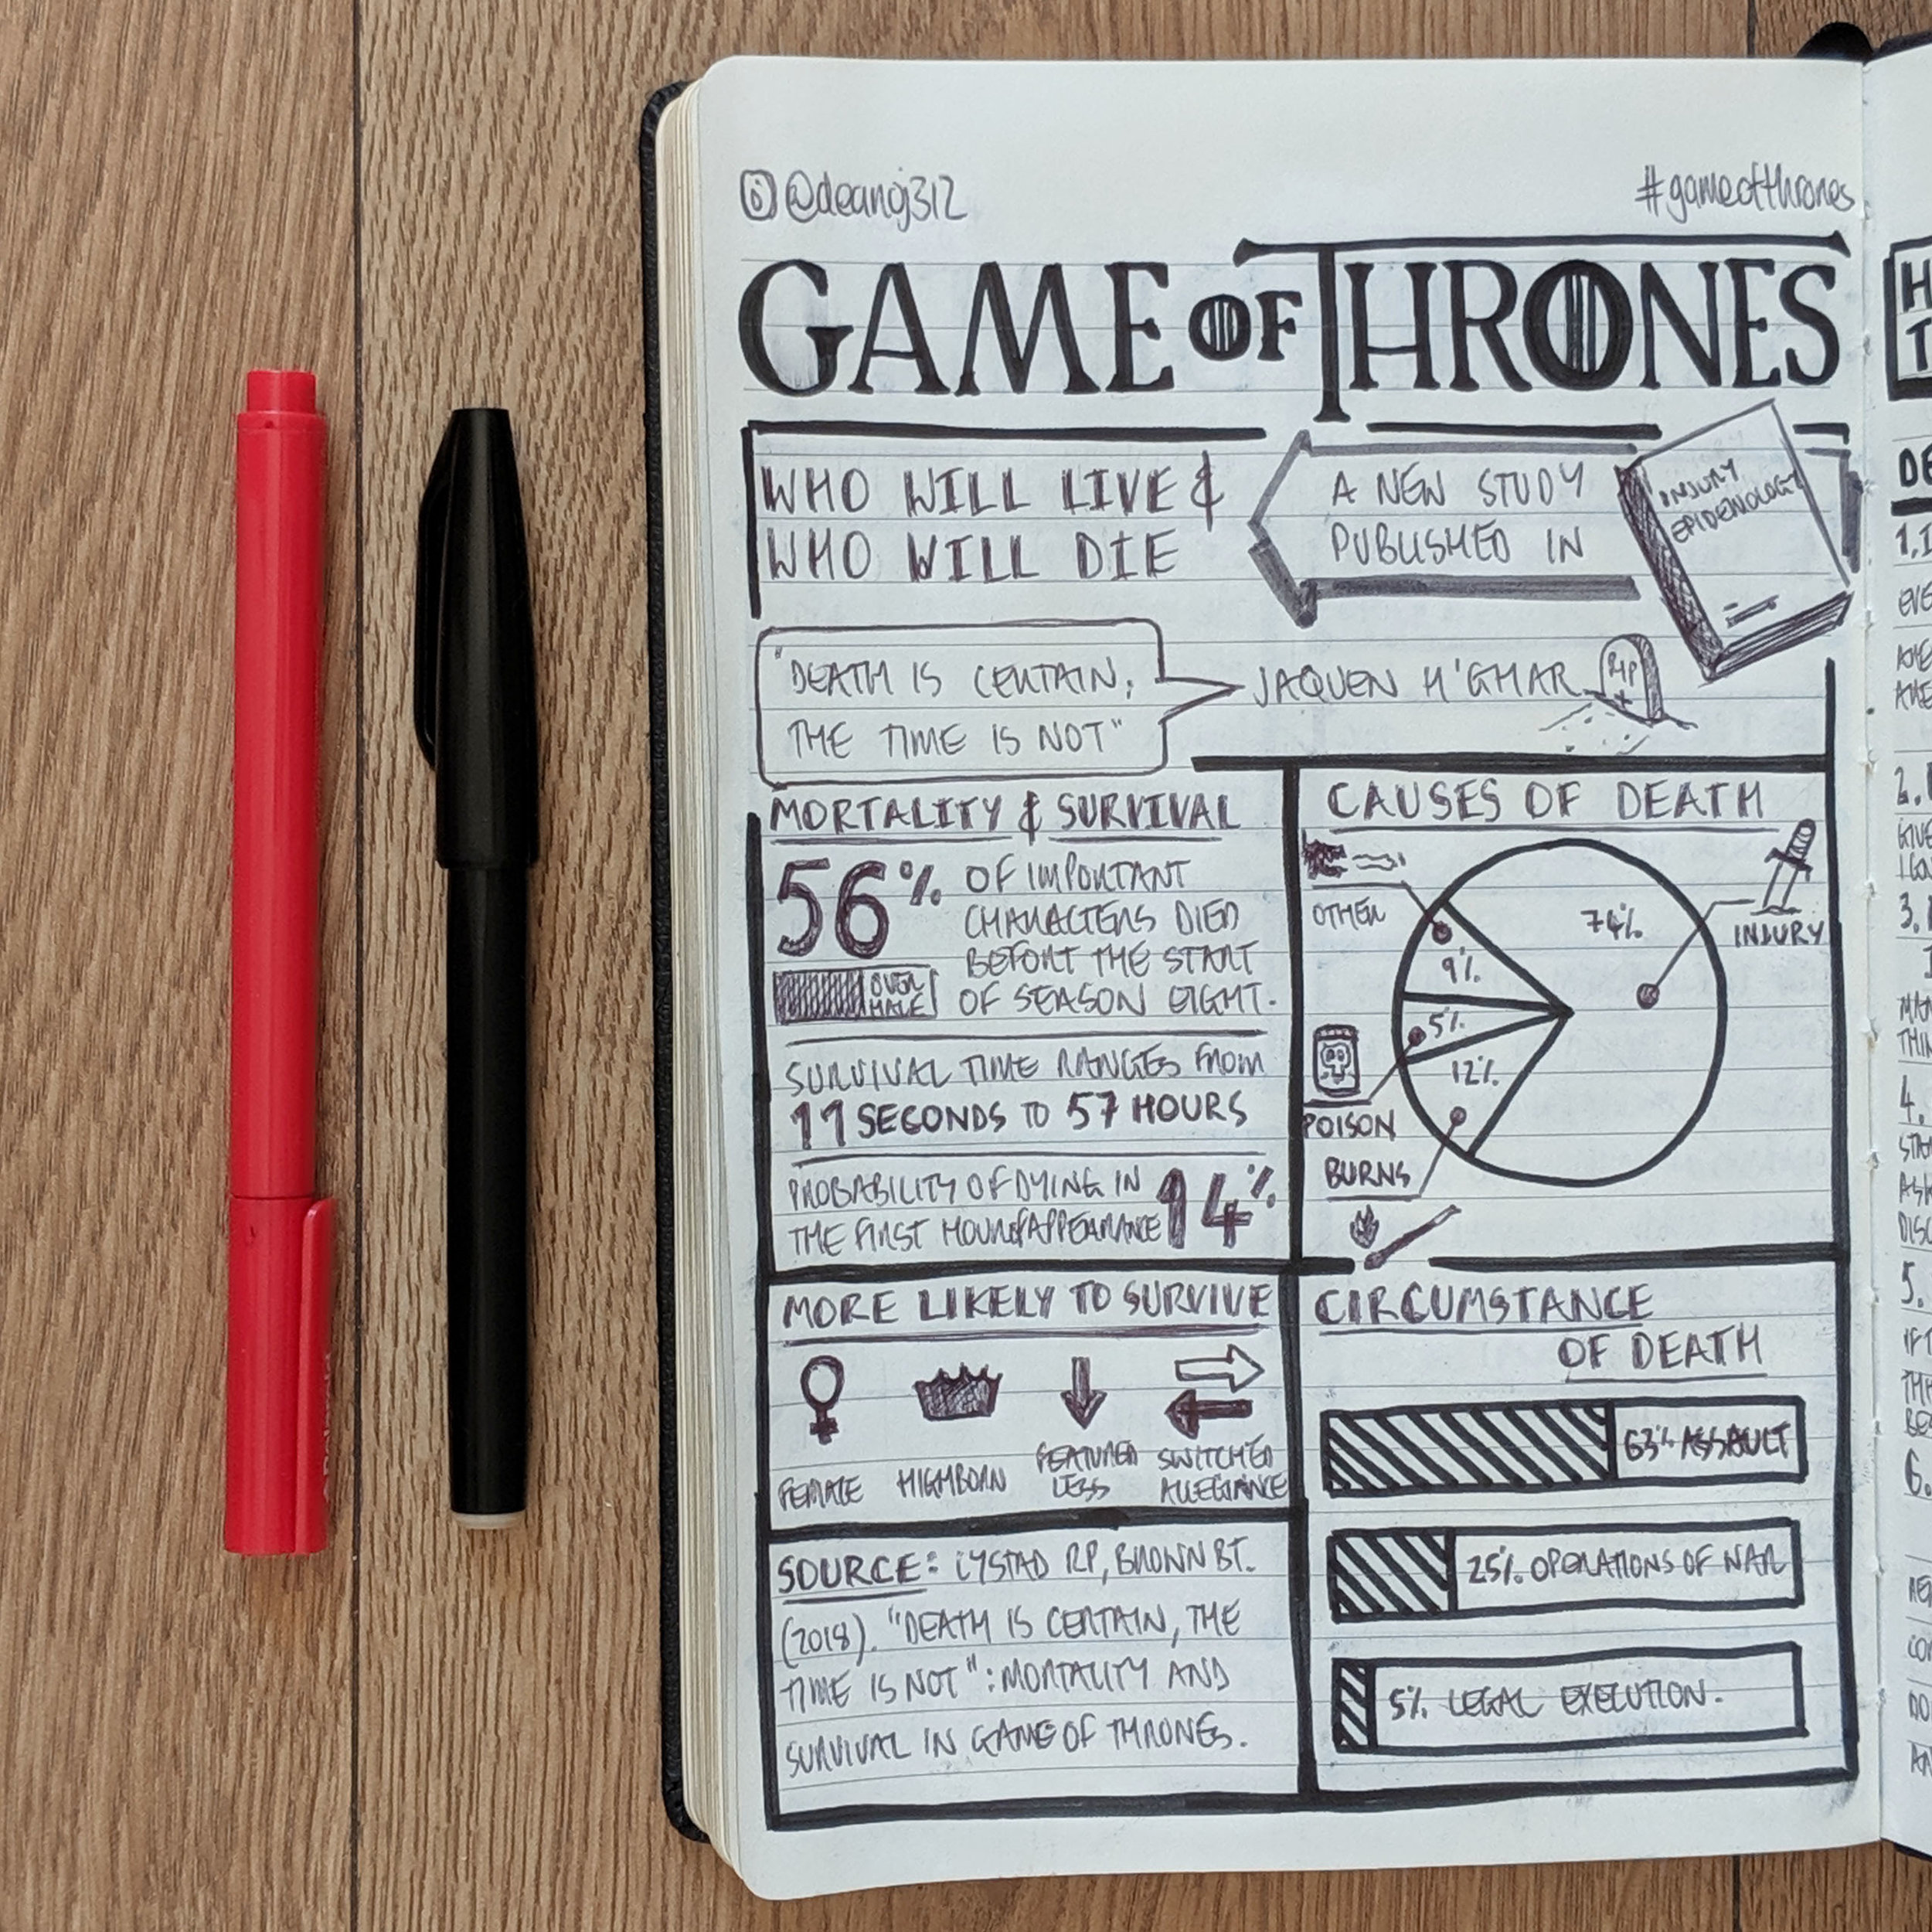 @deanoj312
#gameofthrones
GAME OF THRONES
WHO WILL LIVE &
WHO WILL DIE
A NEW STUDY
PUBLISHED IN
INJURY
EPIDEMOLOGY
"DEATH IS CERTAIN,
THE TIME IS NOT"
JAQUEN H'GHAR
RIP
MORTALITY & SURVIVAL
56% OF IMPORTANT
CHARACTERS DIED
BEFORE THE START
OF SEASON EIGHT.
OVER
HALF
SURVIVAL TIME RANGES FROM
11 SECONDS TO 57 HOURS
PROBABILITY OF DYING IN
THE FIRST HOUR OF APPEARANCE 14%
CAUSES OF DEATH
OTHER
74%
INJURY
9%
5%
12%
POISON
BURNS
MORE LIKELY TO SURVIVE
FEMALE
HIGHBORN
FEATURED
LESS
SWITCHED
ALLEGIANCE
CIRCUMSTANCE
OF DEATH
63% ASSAULT
25% OPERATIONS OF WAR
5% LEGAL EXECUTION.
SOURCE: LYSTAD RP, BROWN BT.
(2018). "DEATH IS CERTAIN, THE
TIME IS NOT": MORTALITY AND
SURVIVAL IN GAME OF THRONES.
1.
2.
3.
4.
5.
6.